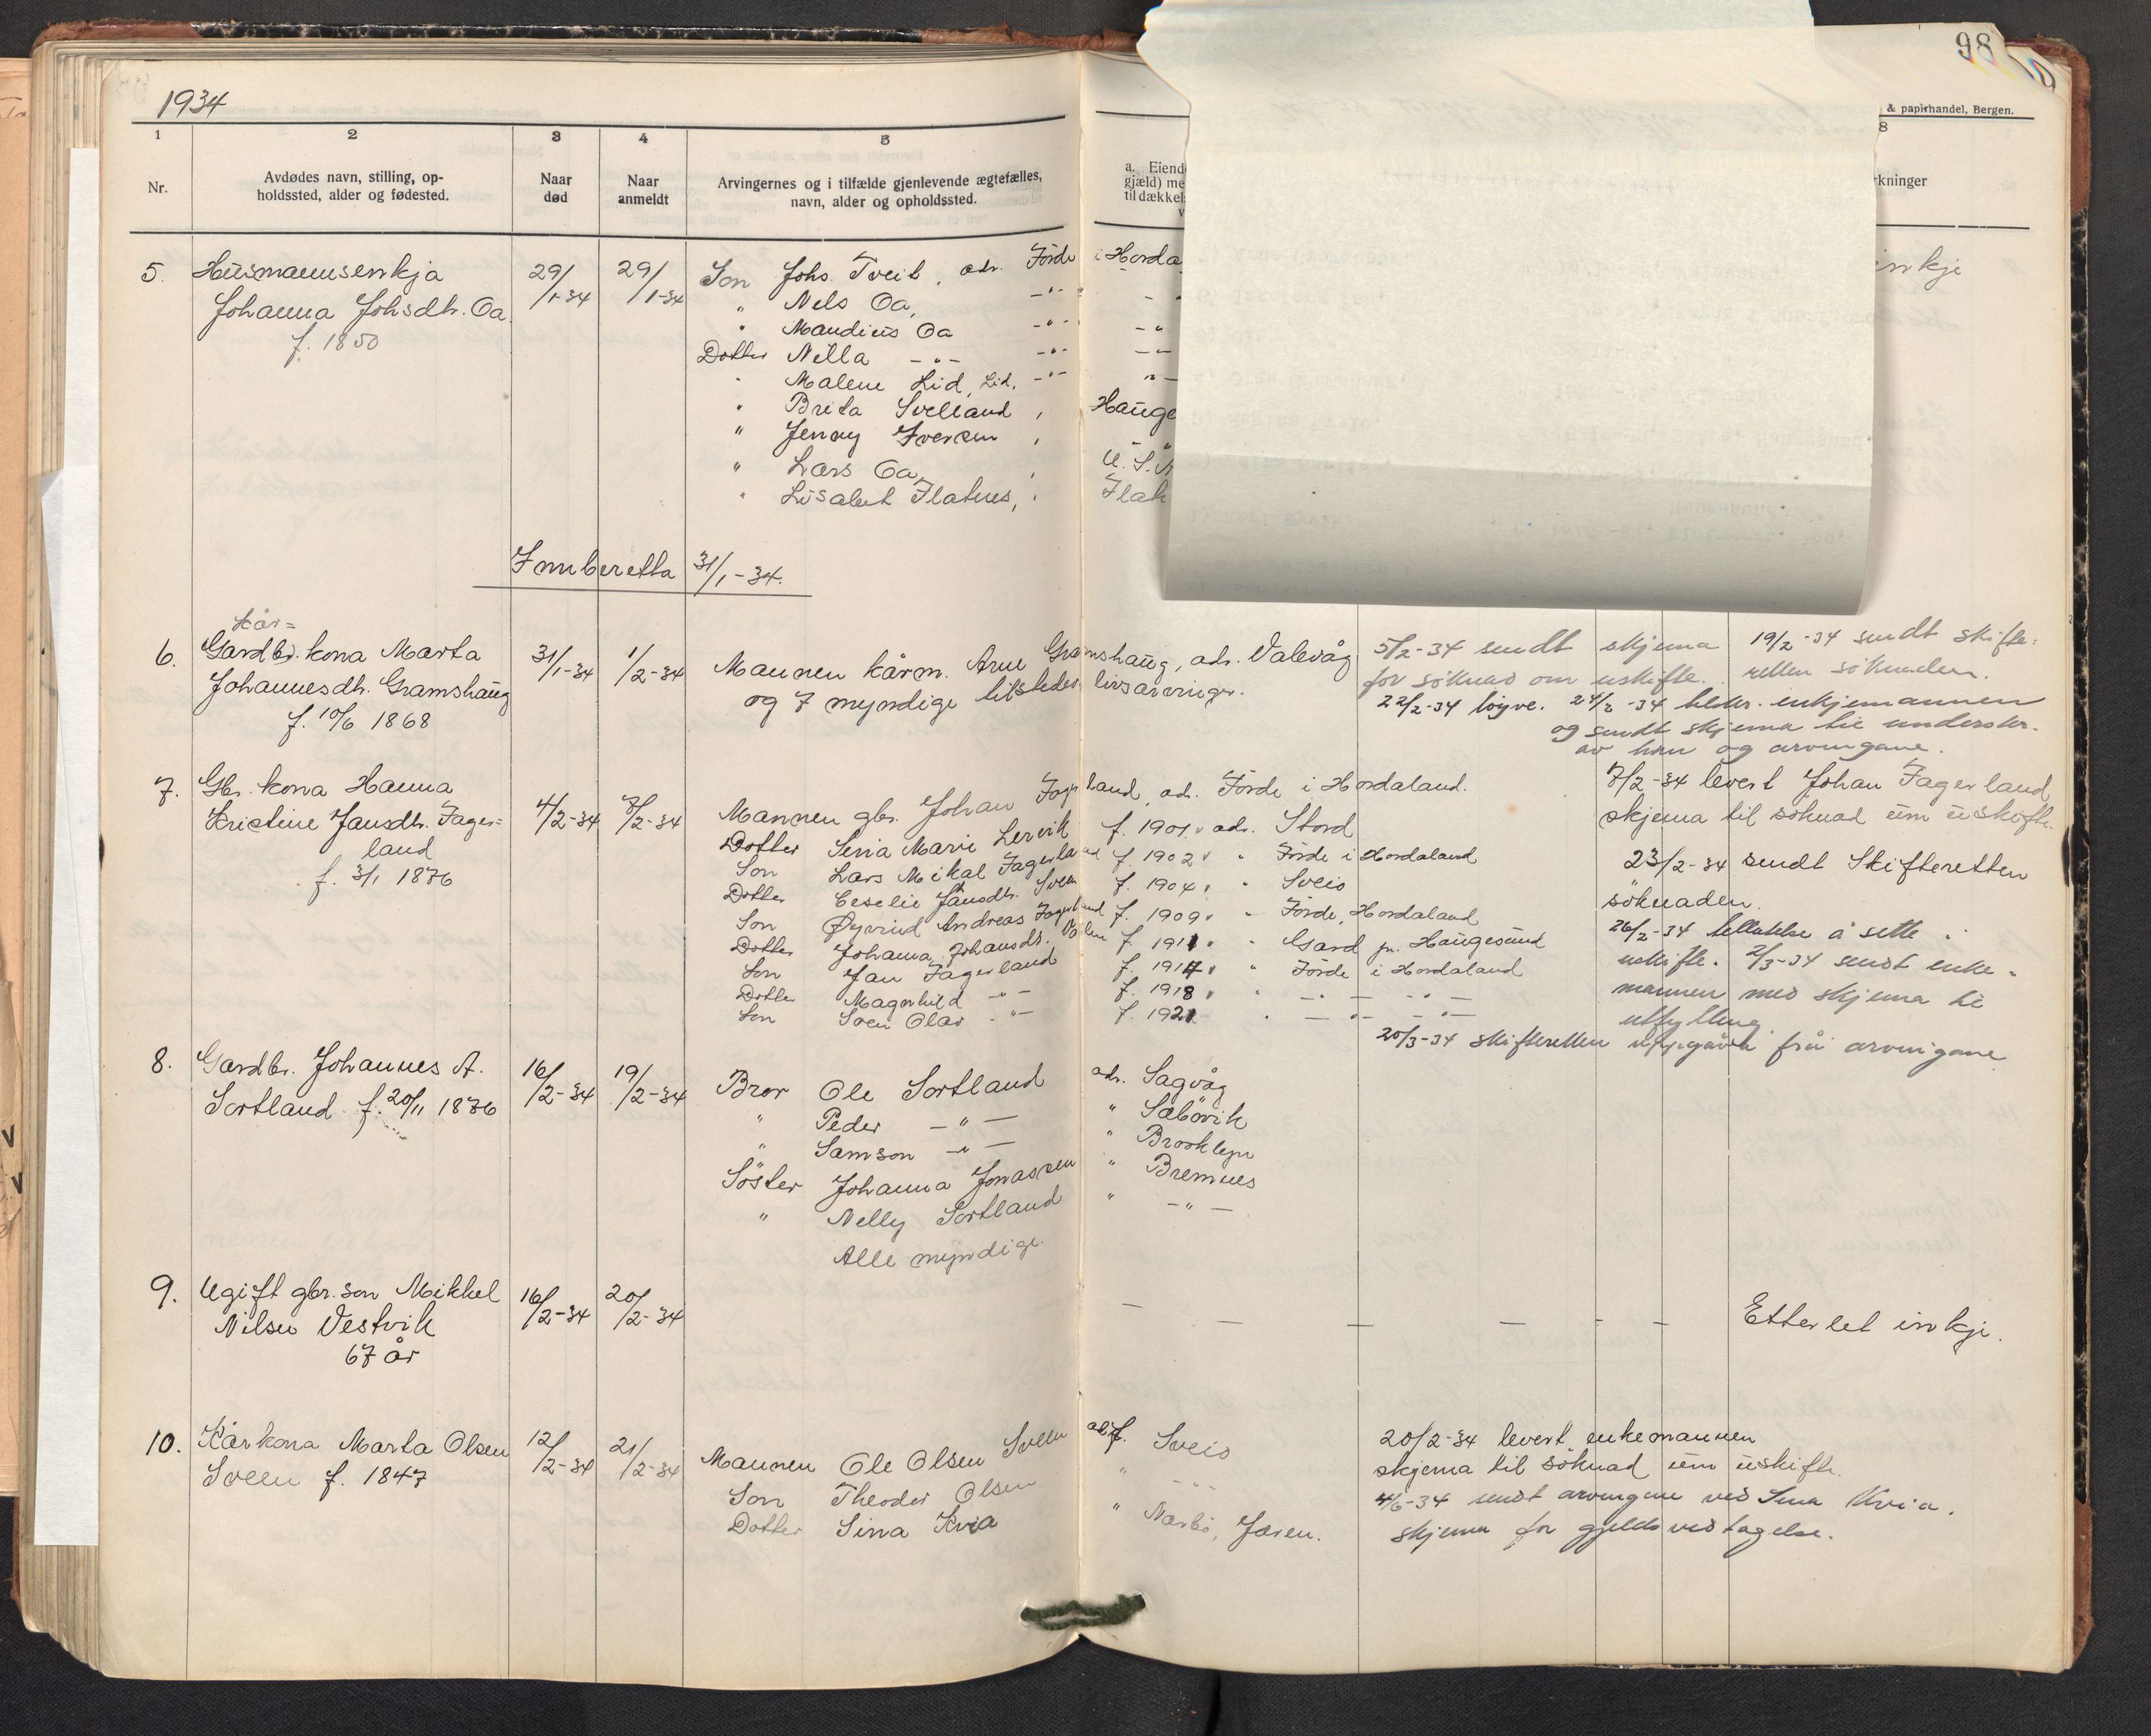 98
1934
& papirhandel, Bergen.
1 2 3 4 5 8
Nr.
Avdødes navn, stilling, op-
holdssted, alder og fødested.
Naar
død
Naar
anmeldt
Arvingernes og i tilfælde gjenlevende ægtefælles,
navn, alder og opholdssted.
a. Eiend
gjæld) me
til dækkel
v
rkninger
5. Husmannsenkja 29/1-34 29/1-34 Son Johs Tveit, adr. Förde i Horda inkje
Johanna Johsdtr. Oa " Nels Oa, -"- - "
f. 1850 " Mandius Oa -"- - "
Dotter Nilla -"- -"- -"-
" Malene Lid, Lid, -"- "-
" Brita Svelland, Hauge
" Jenny Iversen, "
" Lars Oa, U.S.
" Lisabet Flatnes, Flat
Innberetta 31/1-34.
Kår=
6. Gardbr. kona Marta 31/1-34 1/2-34 Mannen kårm. Arne Gramshaug, adr. Valevåg 5/2-34 sendt skjema 19/2-34 sendt skifte-
Johannesdtr. Gramshaug og 7 myndige tilstede livsarvinger. for söknad om uskifte. retten söknaden.
f. 10/6 1868 22/2-34 löyve. 24/2-34 enkjemannen
og sendt skjema til underskr.
av han og arvingane.
7. Gbr. kona Hanna 4/2-34 7/2-34 Mannen gbr. Johan Fagerland, adr. Förde i Hordaland. 7/2-34 levert Johan Fagerland
Kristine Jansdtr. Fager= Dotter Sina Marie Lervik f. 1901, adr. Stord skjema til söknad um uskifte.
land Son Lars Mikal Fagerland f. 1902, " Förde i Hordaland 23/2-34 sendt Skifteretten
f. 3/1 1876 Dotter Ceselie Jansdtr. Sveen f. 1904, " Sveio söknaden.
Son Øyvind Andreas Fagerland f. 1909, " Förde, Hordaland 26/2-34 tillatelse å sitte i
Dotter Johanna Johansdtr. f. 1911, " Gard pr. Haugesund uskifte. 2/3-34 sendt enke-
Son Jan Fagerland f. 1914, " Förde i Hordaland mannen med skjema til
Dotter Magnhild -"- f. 1918, " -"- -"- utfylling.
Son Sven Olav -"- f. 1921 " -"- -"-
20/3-34 skifteretten uppgåva frå arvingane
8. Gardbr. Johannes A. 16/2-34 19/2-34 Bror Ole Sortland adr. Sagvåg
Sortland f. 20/11 1876 " Peder -"- " Sæbövik
" Samson -"- " Brooklyn
Söster Johanna Jonassen " Bremnes
" Nelly Sortland " -"-
Alle myndige.
9. Ugift gbr. son Mikkel 16/2-34 20/2-34 - - - - - - Etterlet inkje.
Nilsen Vestvik
67 år
10. Kårkona Marta Olsen 12/2-34 21/2-34 Mannen Ole Olsen Sveen adr. Sveio 20/2-34 levert enkemannen
Sveen f. 1847 Son Theodor Olsen " -"- skjema til söknad um uskifte.
Dotter Sina Kvia " Nærbö, Jæren. 4/6-34 sendt arvingene ved Sina Kvia.
skjema for gjeldsvedtagelse.